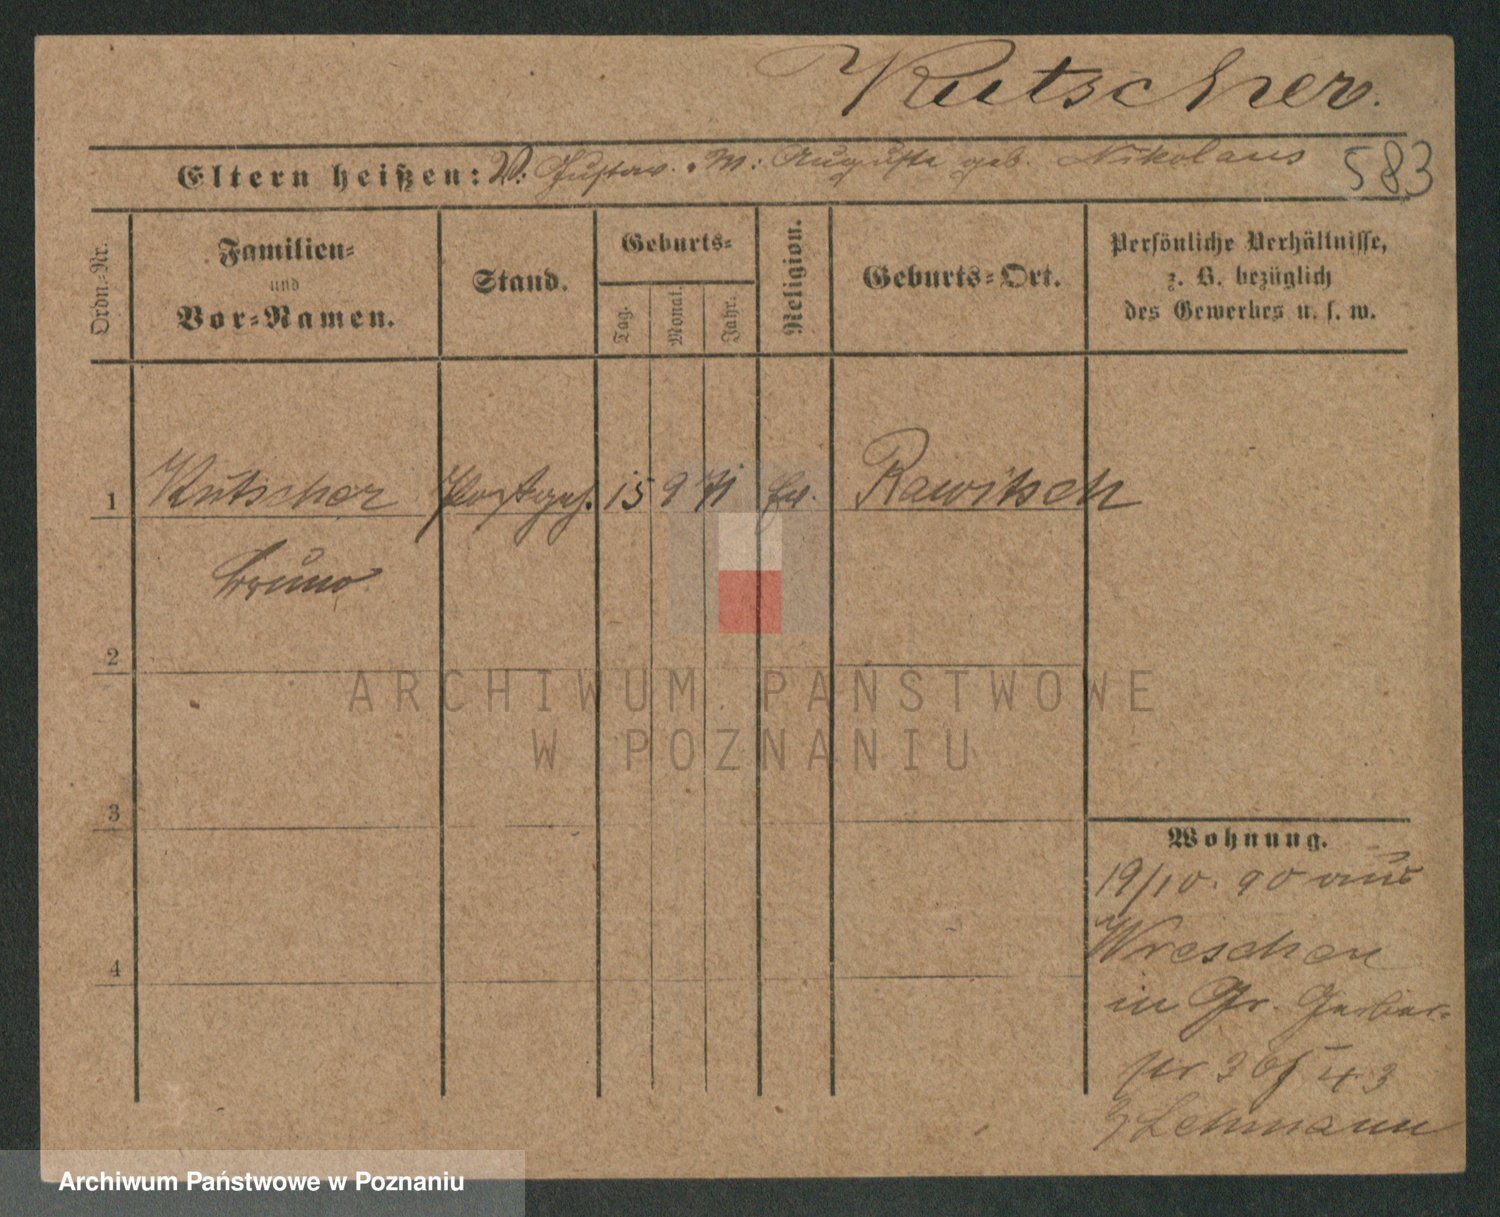 Kutscher.
Eltern heißen: V: Gustav. M: Auguste geb. Nikolaus
583
Ordn.-Nr.
Familien-
und
Vor-Namen.
Stand.
Geburts-
Tag.
Monat.
Jahr.
Religion.
Geburts-Ort.
Persönliche Verhältnisse,
z. B. bezüglich
des Gewerbes u. s. w.
1 Kutscher Postgeh. 15 9 71 ev. Rawitsch
Bruno
2
3
4
Wohnung.
19/10. 90 aus
Wreschen
in Gr. Gerber-
str 43
Lehmann
ARCHIWUM PAŃSTWOWE
W POZNANIU
Archiwum Państwowe w Poznaniu